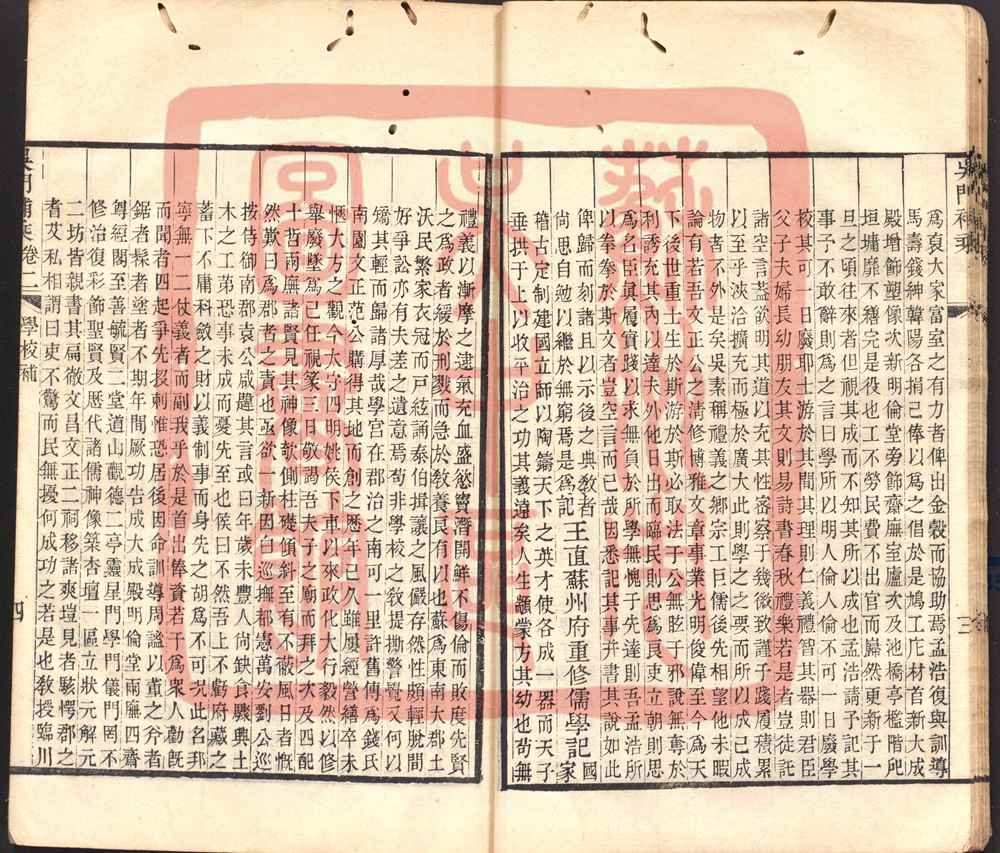 爲裒大家富室之有力者俾出金穀而協助焉孟浩復與訓導
馬壽錢紳韓陽各捐己俸以爲之倡於是鳩工庀材首新大成
殿增飾塑像次新明倫堂堂旁飾齋廡室廬次及池橋亭檻階戺
垣墉靡不繕完是役也工不勞民費不出官而巋然更新于一
旦之頃往來者但視其成而不知其所以成也孟浩請予記其
事予不敢辭則爲之言曰學所以明人倫人倫不可一日廢學
校其可一日廢耶士游於其間其理則仁義禮智其器則君臣
父子夫婦長幼朋友其文則易詩書春秋禮樂若是者豈徒託
諸空言葢欲明其道以充其性密察于幾微致謹于踐履積累
以至乎浹洽擴充而極於廣大此則學之之要而所以成己成
物者不外是矣吳素稱禮義之鄉宗工巨儒後先相望他未暇
論有若吾吳文正公之清修博雅文章事業光明俊偉至今爲天
下後世重士生於斯游於斯必取法于公無眩于邪說無奪於
利誘充其內以達夫外他日出而臨民則思爲良吏立朝則思
爲名臣其眞履實踐以求無負於所學無愧于先達則吾孟浩所
以拳拳於斯文者豈空言而已哉因悉記其事并書其說如此
俾歸而刻諸且以示後之典教者
尙思自勉以繼於無窮焉是爲記 王直蘇州府重修儒學記 國家
稽古定制建國立師以陶鑄天下之英才使各成一器而天子
垂拱于上以收平治之功其義遠矣人生蠢蒙方其幼也茍無
吳門補乗
三
禮義以漸摩之逮氣充血盛慾竇濬開鮮不傷倫而敗度先賢
之爲政者緩於刑戮而急於敎養良有以也蘇爲東南大郡土
沃民繁家衣冠而戶絃誦泰伯揖讓之風儼存然性頗輕脫間
好爭訟亦有夫差之遺意焉茍非學校之敎提撕警覺又何以
矯其輕而歸諸厚哉學宮在郡治之南可一里許舊傳爲錢氏
南園文正范公購得其地而創之悉年已久雖屢經營繕卒未
愜大方之觀今大守四明姚侯下車以來政化大行毅然以修
舉廢墜爲己任視篆三日敬謁吾夫子之廟而拜之次及四配
十哲兩廡諸賢見其神像欹側柱礎傾斜至有不蔽風日者慨
然歎曰爲郡者之責也亟欲一新因白巡撫都憲萬安劉公巡
按侍御南郡袁公咸題其言或曰年歲未豐人尙缺食驟興土
木之工苐恐事未成而憂先至也侯曰不然吾上不虧府藏之
蓄下不庸科斂之財以義制事而身先之胡爲不可況此名邦
寧無一二仗義者而副我乎於是首出俸資若干爲衆人勸旣
而聞者四起爭先投刺惟恐居後因命訓導周謐以董之斧者
鋸者樣者塗者不期年間厥功告成大成殿明倫堂兩廡四齋
粤經閣至善毓賢二堂道山觀德二亭靈星門學門儀門罔不
修治復彩飾聖賢及歷代諸儒神像築杏壇一區立狀元解元
二坊皆親書其扁徹文昌文正二祠移諸爽塏見者駭愕郡之
耆艾私相謂曰吏不驚而民無擾何成功之若是也敎授臨川
吳門補乗卷二 學校補
四